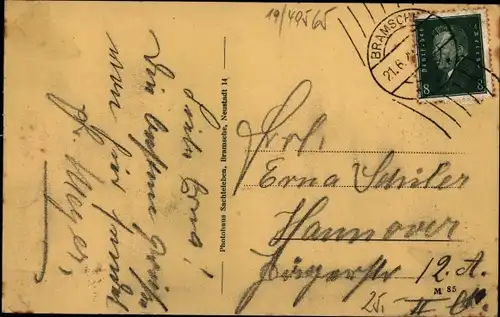 19/49565
BRAMSCHE
21.6.
Deutsches Reich
8 8
Liebe Erna!
Die besten Grüße
von hier sendet
Fr. Meyer.
Photohaus Sachtleben, Bramsche, Neustadt 14
Frl.
Erna Schüler
Hannover
Jägerstr. 12. A.
M 85
II